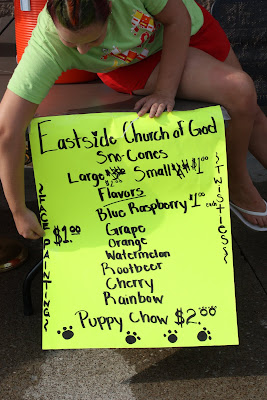 Eastside Church of God
Sno-Cones
Large $2.00 Small $1.00
Flavors
Blue Raspberry
Grape
Orange
Watermelon
Rootbeer
Cherry
Rainbow
Puppy Chow $2.00
FACE PAINTING
$1.00
TWISTIES
$1.00 each